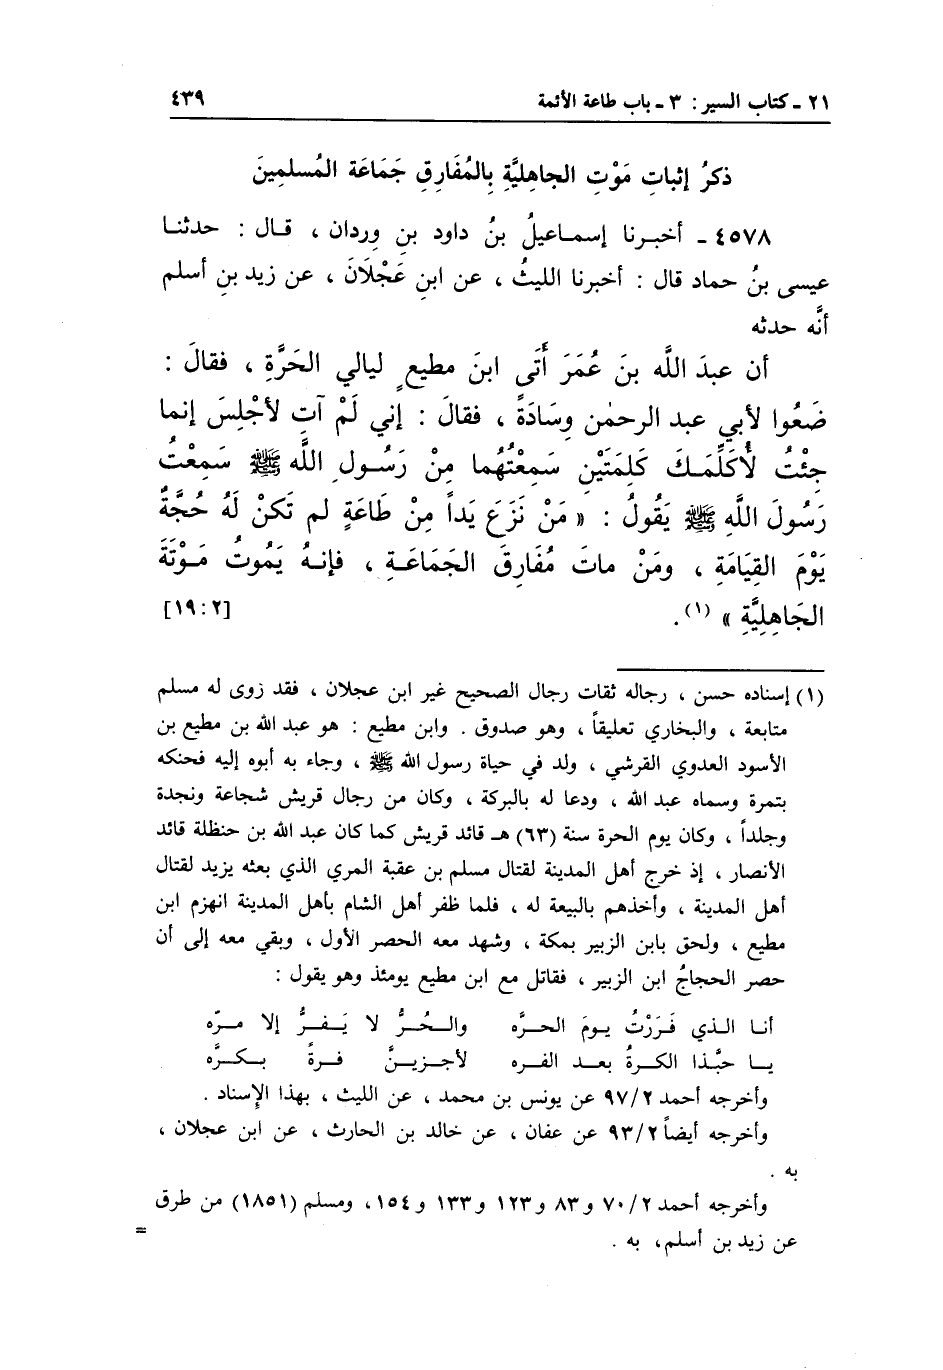 ٢١ - كتاب السير : ٣ - باب طاعة الأئمة ٤٣٩
ذكرُ إثباتِ مَوْتِ الجاهِليَّةِ بِالمُفَارِقِ جَمَاعَة المُسلمِينَ
٤٥٧٨ - أخبـرنا إسمـاعيلُ بنُ داود بنِ وردان ، قـال : حدثنـا
عيسى بنُ حماد قال : أخبرنا الليثُ ، عن ابنِ عَجْلَانَ ، عن زيد بنِ أسلم
أنَّه حدثه
أن عبدَ اللَّه بنَ عُمَرَ أَتَى ابنَ مطيعٍ ليالي الحَرَّةِ ، فقالَ :
ضَعُوا لأبي عبد الرحمٰن وِسَادَةً ، فقالَ : إني لَمْ آتِ لأجْلِسَ إنما
جِئْتُ لُأكَلِّمَـكَ كَلِمَتَيْنِ سَمِعْتُهُما مِنْ رَسُـولِ اللَّه ﷺ سَمِعْتُ
رَسُولَ اللَّهِ ﷺ يَقُولُ : « مَنْ نَزَعَ يَداً مِنْ طَاعَةٍ لم تَكنْ لَهُ حُجَّةٌ
يَوْمَ القِيَامَةِ ، ومَنْ ماتَ مُفَارِقَ الجَمَاعَـةِ ، فإنـهُ يَمُوتُ مَـوْتَةَ
الجَاهِلِيَّةِ » (١) . [٢ : ١٩]
(١) إسناده حسن ، رجاله ثقات رجال الصحيح غير ابن عجلان ، فقد روى له مسلم
متابعة ، والبخاري تعليقاً ، وهو صدوق . وابن مطيع : هو عبد الله بن مطيع بن
الأسود العدوي القرشي ، ولد في حياة رسول الله ﷺ ، وجاء به أبوه إليه فحنكه
بتمرة وسماه عبد الله ، ودعا له بالبركة ، وكان من رجال قريش شجاعة ونجدة
وجلداً ، وكان يوم الحرة سنة (٦٣) هـ قائد قريش كما كان عبد الله بن حنظلة قائد
الأنصار ، إذ خرج أهل المدينة لقتال مسلم بن عقبة المري الذي بعثه يزيد لقتال
أهل المدينة ، وأخذهم بالبيعة له ، فلما ظفر أهل الشام بأهل المدينة انهزم ابن
مطيع ، ولحق بابن الزبير بمكة ، وشهد معه الحصر الأول ، وبقي معه إلى أن
حصر الحجاجُ ابن الزبير ، فقاتل مع ابن مطيع يومئذ وهو يقول :
أنـا الـذي فَـرَرْتُ يـومَ الحـرَّه والـحُـرُّ لا يَـفـرُّ إلا مـرّه
يـا حبَّـذا الكـرةُ بعـد الفـره لأجـزيـنَّ فـرةً بـكـرَّه
وأخرجه أحمد ٢/ ٩٧ عن يونس بن محمد ، عن الليث ، بهذا الإسناد .
وأخرجه أيضاً ٢/ ٩٣ عن عفان ، عن خالد بن الحارث ، عن ابن عجلان ،
به .
وأخرجه أحمد ٢/ ٧٠ و ٨٣ و ١٢٣ و ١٣٣ و ١٥٤، ومسلم (١٨٥١) من طرق
عن زيد بن أسلم، به .
=